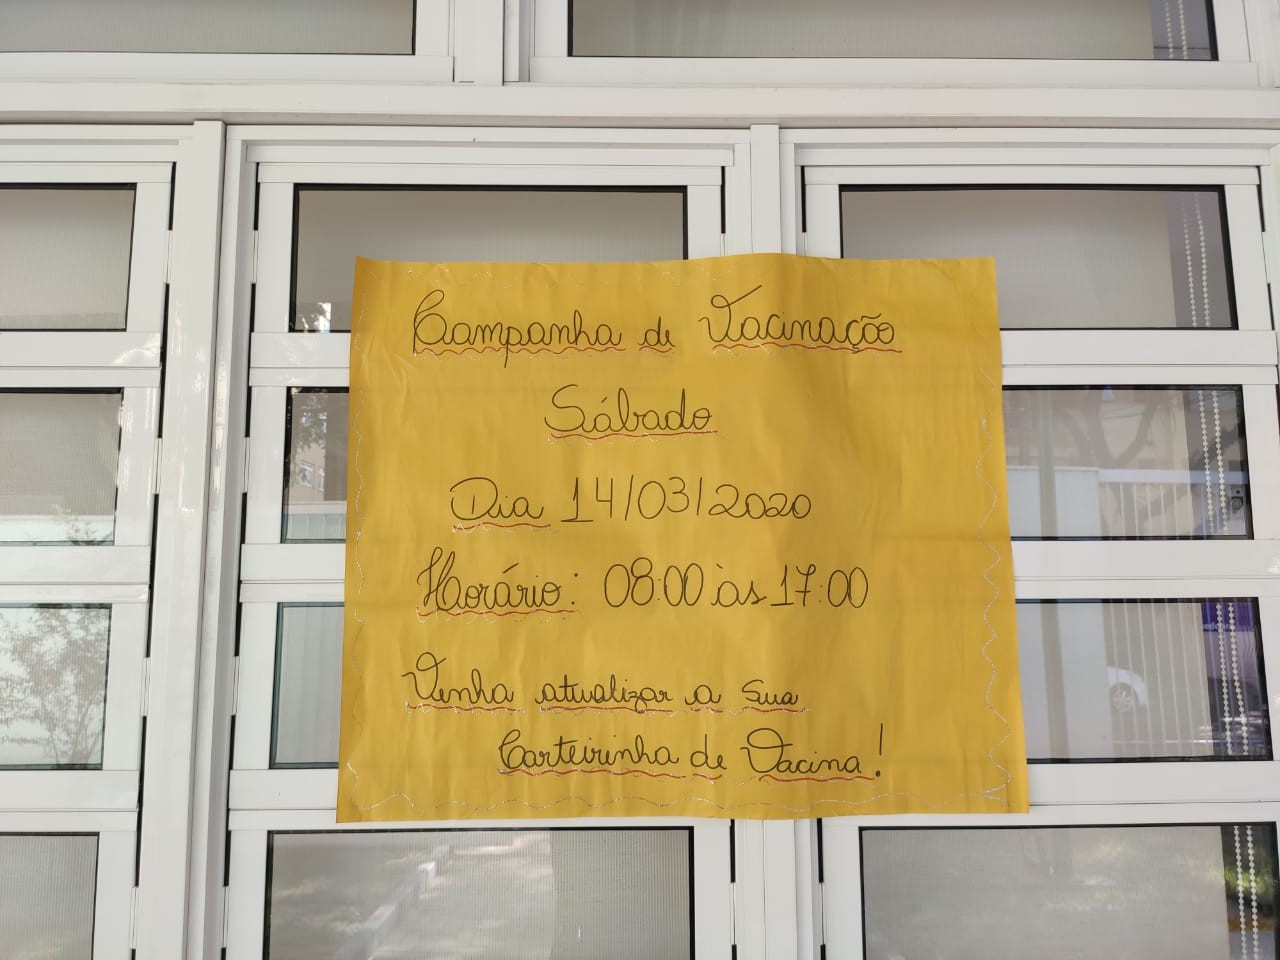 Campanha de Vacinação
Sábado
Dia 14/03/2020
Horário: 08:00 às 17:00
Venha atualizar a sua
Carteirinha de Vacina!